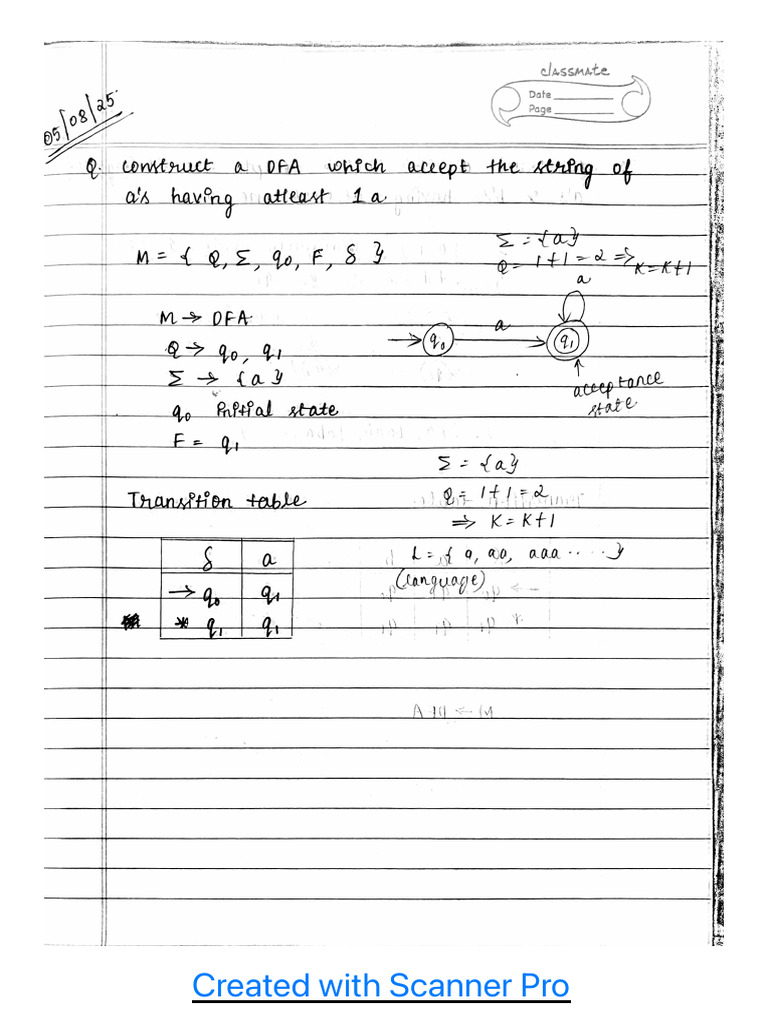 classmate
Date
Page
05/08/25
Q. construct a DFA which accept the string of
a's having atleast 1 a.
M = { Q, Σ, q0, F, δ }
Σ = {a}
Q = 1+1 = 2 ⇒ K=K+1
M → DFA
Q → q0, q1
Σ → {a}
q0 initial state
F = q1
a
a
q0
q1
acceptance
state
Σ = {a}
Q = 1+1=2
⇒ K=K+1
L = { a, aa, aaa ..... }
(language)
Transition table
δ a
→ q0 q1
* q1 q1
Created with Scanner Pro